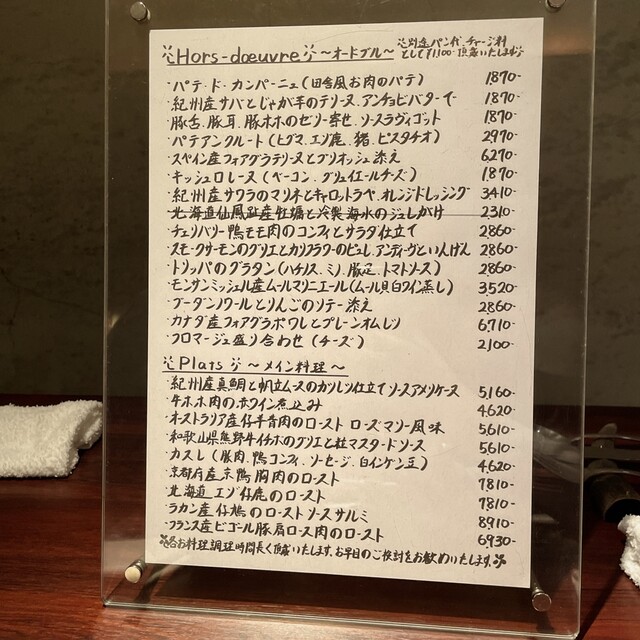 Hors-dœuvre ～オードブル～ ※別途パン代、チャージ料
として¥1,100-頂戴いたします
・パテ・ド・カンパーニュ(田舎風お肉のパテ) 1870-
・紀州産サバとじゃが芋のテリーヌ、アンチョビバターで 1870-
・豚舌、豚耳、豚ホホのゼリー寄せ、ソースラヴィゴット 1870-
・パテアンクルート(ヒグマ、エゾ鹿、猪、ピスタチオ) 2970-
・スペイン産フォアグラテリーヌとブリオッシュ添え 6,270-
・キッシュロレーヌ(ベーコン、グリュイエールチーズ) 1,870-
・紀州産サワラのマリネとキャロットラペ、オレンジドレッシング 3,410-
・北海道仙鳳趾産牡蠣と冷製海水のジュレがけ 2310-
・チェリバリー鴨モモ肉のコンフィとサラダ仕立て 2860-
・スモークサーモンのグリエとカリフラワーのピュレ、アンディーヴといんげん 2860-
・トリッパのグラタン(ハチノス、ミノ、豚足、トマトソース) 2860-
・モンサンミッシェル産ムールマリニエール(ムール貝白ワイン蒸し) 3,520-
・ブーダンノワールとりんごのソテー添え 2860-
・カナダ産フォアグラポワレとプレーンオムレツ 6,710-
・フロマージュ盛り合わせ(チーズ) 2,100-
Plats ～メイン料理～
・紀州産真鯛と帆立ムースのカツレツ仕立て ソースアメリケース 5,160-
・牛ホホ肉の赤ワイン煮込み 4620-
・オーストラリア産仔羊背肉のロースト ローズマリー風味 5,610-
・和歌山県熊野牛イチボのグリエと粒マスタードソース 5,610-
・カスレ(豚肉、鴨コンフィ、ソーセージ、白インゲン豆) 4620-
・京都府産京鴨胸肉のロースト 7810-
・北海道エゾ仔鹿のロースト 7810-
・ラカン産仔鳩のロースト ソースサルミ 8910-
・フランス産ビゴール豚肩ロース肉のロースト 6930-
※各お料理調理時間長く頂戴いたします。お早目のご検討をお勧めいたします。※